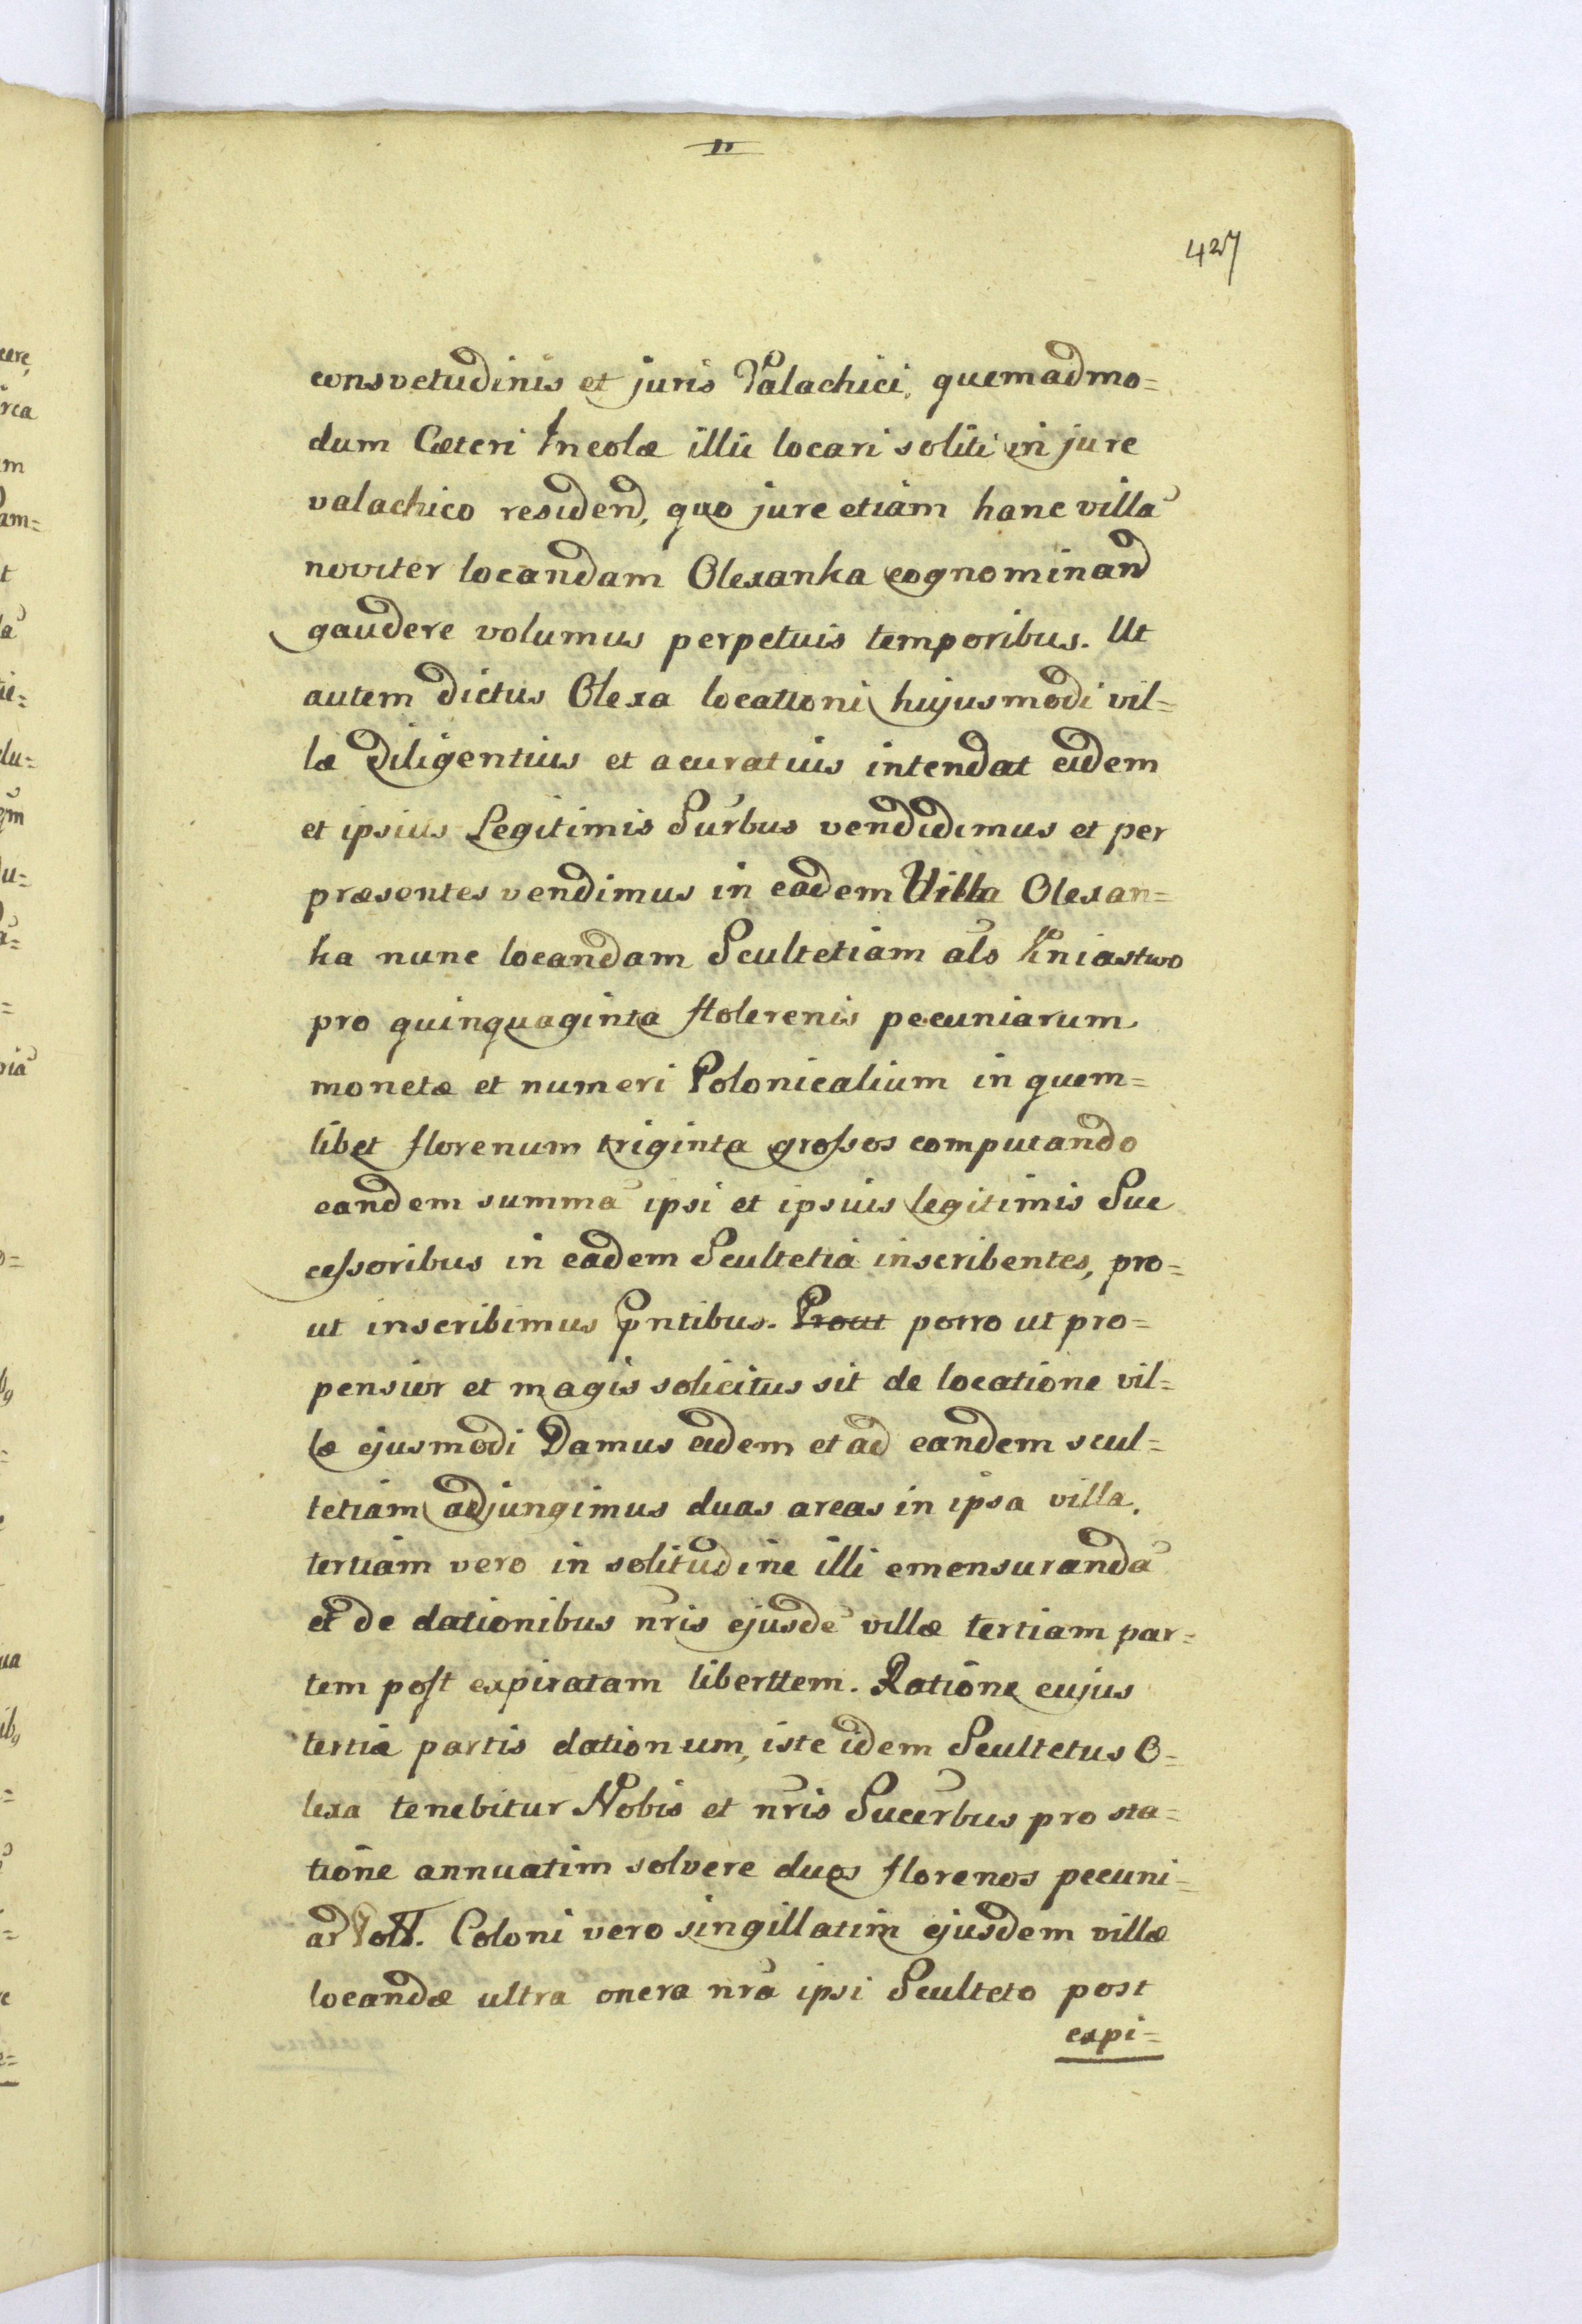 427
consvetudinis et juris Valachici, quemadmo=
dum Cæteri Incolæ illic locari soliti in jure
valachico residend, quo jure etiam hanc villã
noviter locandam Olexanka cognominand
gaudere volumus perpetuis temporibus. Ut
autem dictus Olexa locationi hujusmodi vil=
læ diligentius et acuratius intendat eidem
et ipsius Legitimis Surbus vendidimus et per
præsentes vendimus in eadem Villa Olexan=
ka nunc locandam Scultetiam als Kniastwo
pro quinquaginta flolerenis pecuniarum
monetæ et numeri Polonicalium in quem=
libet florenum triginta grossos computando
eandem summã ipsi et ipsius legitimis Suc
cessoribus in eadem Scultetia inscribentes, pro=
ut inscribimus pntibus. Prout porro ut pro=
pensior et magis solicitus sit de locatione vil=
læ ejusmodi Damus eidem et ad eandem scul=
tetiam adjungimus duas areas in ipsa villa,
tertiam vero in solitudine illi emensurandã
et de dationibus nris ejusdẽ villæ tertiam par=
tem post expiratam liberttem. Ratione cujus
tertiæ partis dationum, iste idem Scultetus O=
lexa tenebitur Nobis et nris Sucerbus pro sta=
tione annuatim solvere duos florenos pecuni=
ar Poll. Coloni vero singillatim ejusdem villæ
locandæ ultra onera nra ipsi Sculteto post
expi=